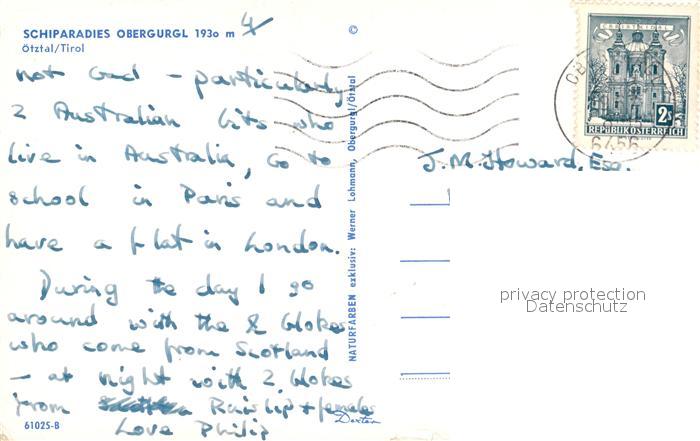 SCHIPARADIES OBERGURGL 1930 m
Ötztal/Tirol
4/
©
not God – particularly
2 Australian bits who
live in Australia, Go to
school in Paris and
have a flat in London.
During the day I go
around with the 2 blokes
who come from Scotland
– at night with 2 blokes
from Ruislip + females
Love Philip
61025-B
Dexter
NATURFARBEN exklusiv: Werner Lohmann, Obergurgl/Ötztal
CHRISTKINDL
2S
REPUBLIK ÖSTERREICH
6456
J.M. Howard, Esq.
privacy protection
Datenschutz